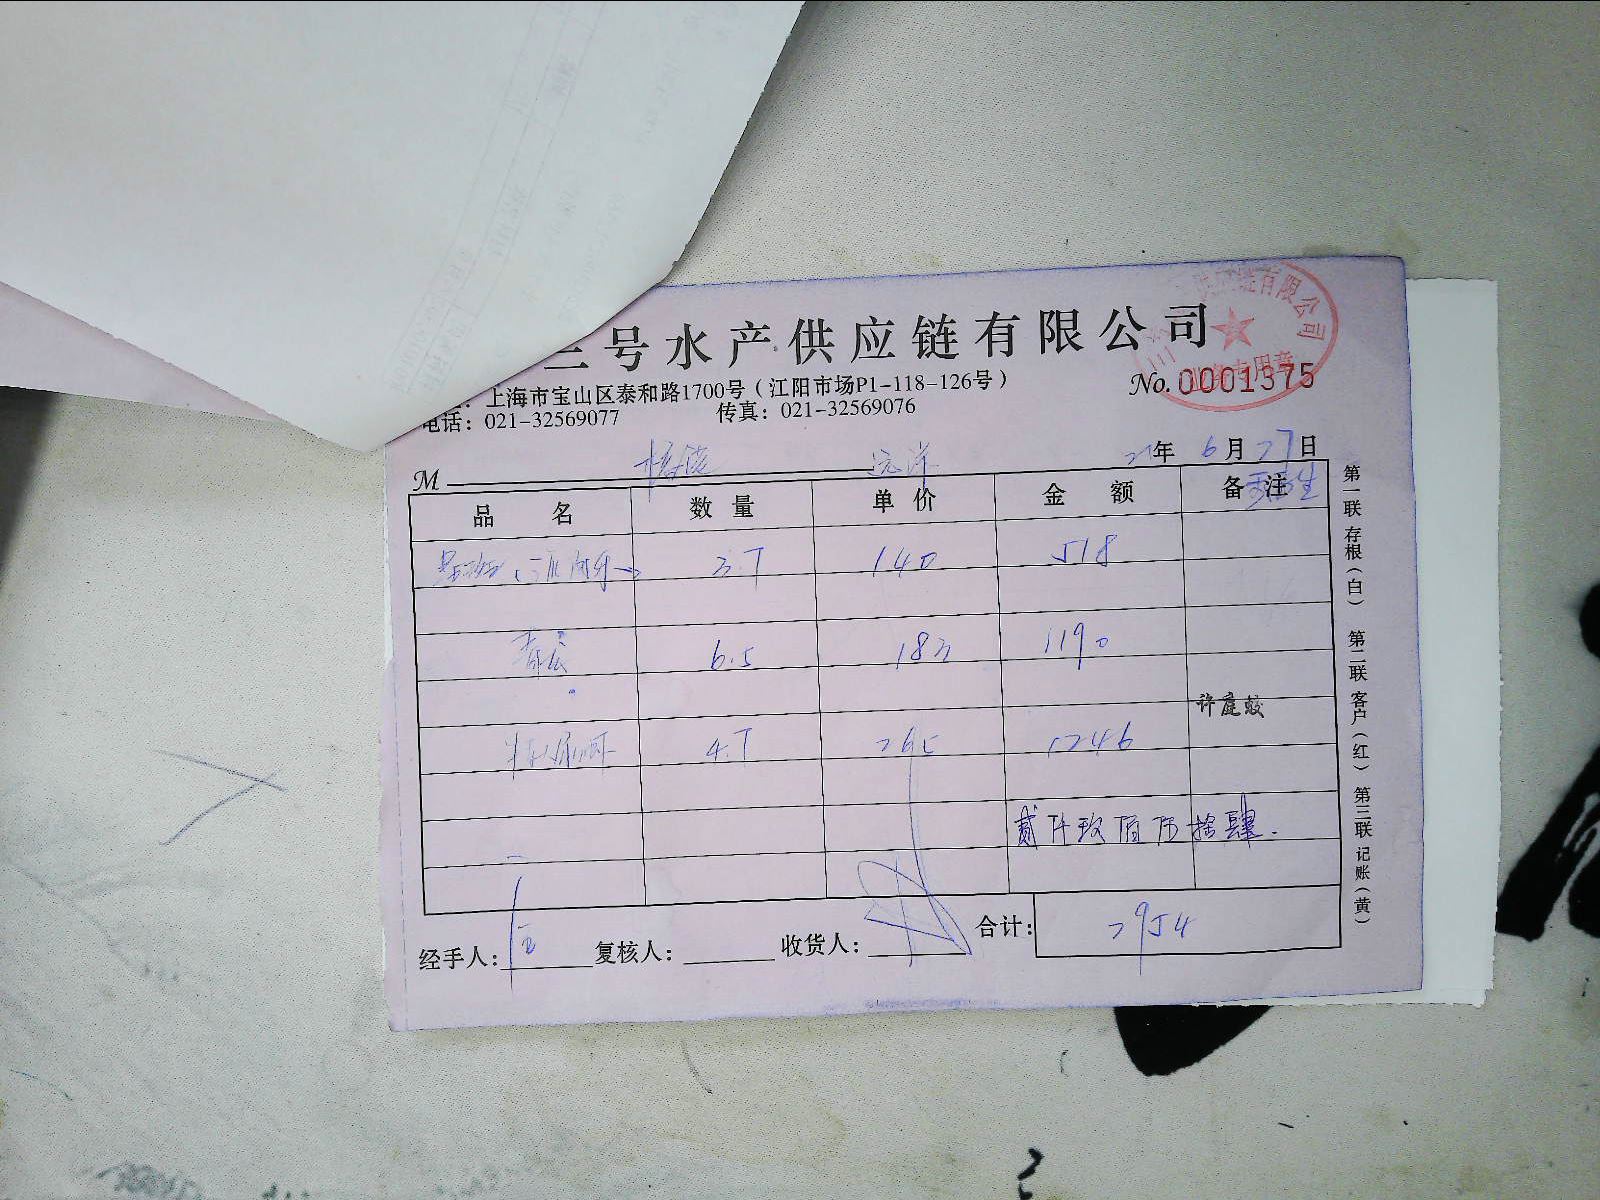 三号水产供应链有限公司
上海市宝山区泰和路1700号(江阳市场P1-118-126号)
电话: 021-32569077 传真: 021-32569076
No. 0001375
链有限公司
专用章
M 远洋 21年 6月 27日
品名 数量 单价 金额 备注
3.7 140 518
青衣 6.5 183 1190
许庭蛟
4.7 265 1246
贰仟玖佰伍拾肆.
合计: 2954
经手人: 复核人: 收货人:
第一联 存根(白) 第二联 客户(红) 第三联 记账(黄)